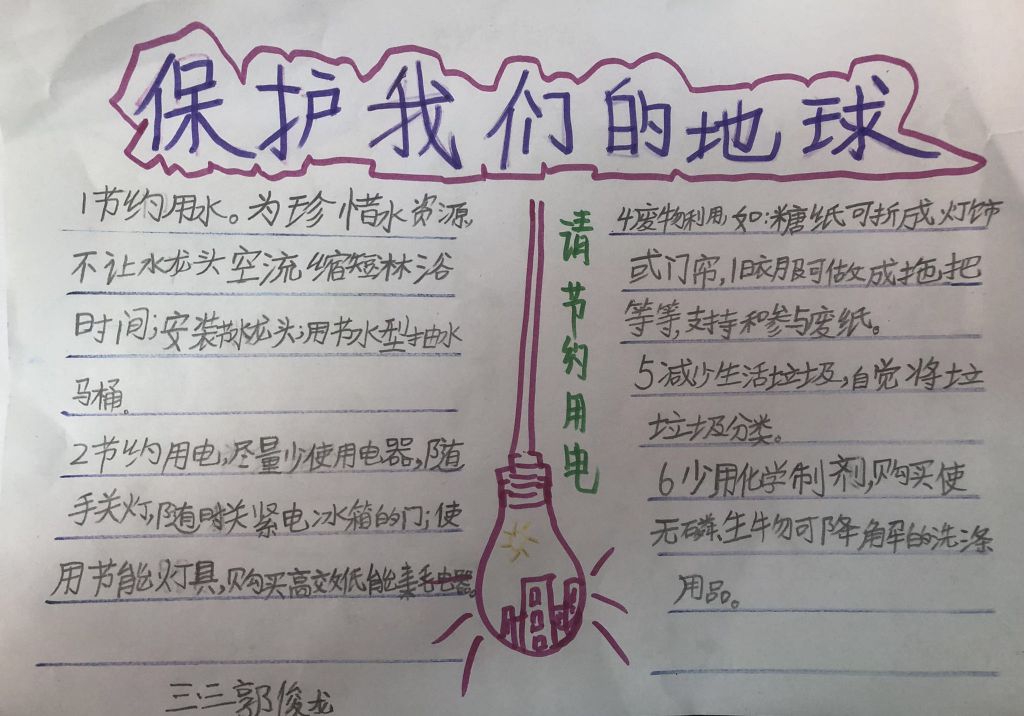 保护我们的地球
1节约用水。为珍惜水资源
不让水龙头空流缩短林浴
时间;安装节水龙头;用节水型抽水
马桶。
2节约用电;尽量少使用电器,随
手关灯,随时关紧电冰箱的门;使
用节能灯具,购买高效低能耗电器。
三.三郭俊龙
请节约用电
4废物利用,如:糖纸可折成灯饰
或门帘,旧衣服可做成拖把
等等,支持和参与废纸。
5减少生活垃圾,自觉将垃
垃圾分类。
6少用化学制剂,购买使
无磷、生物可降解的洗涤
用品。